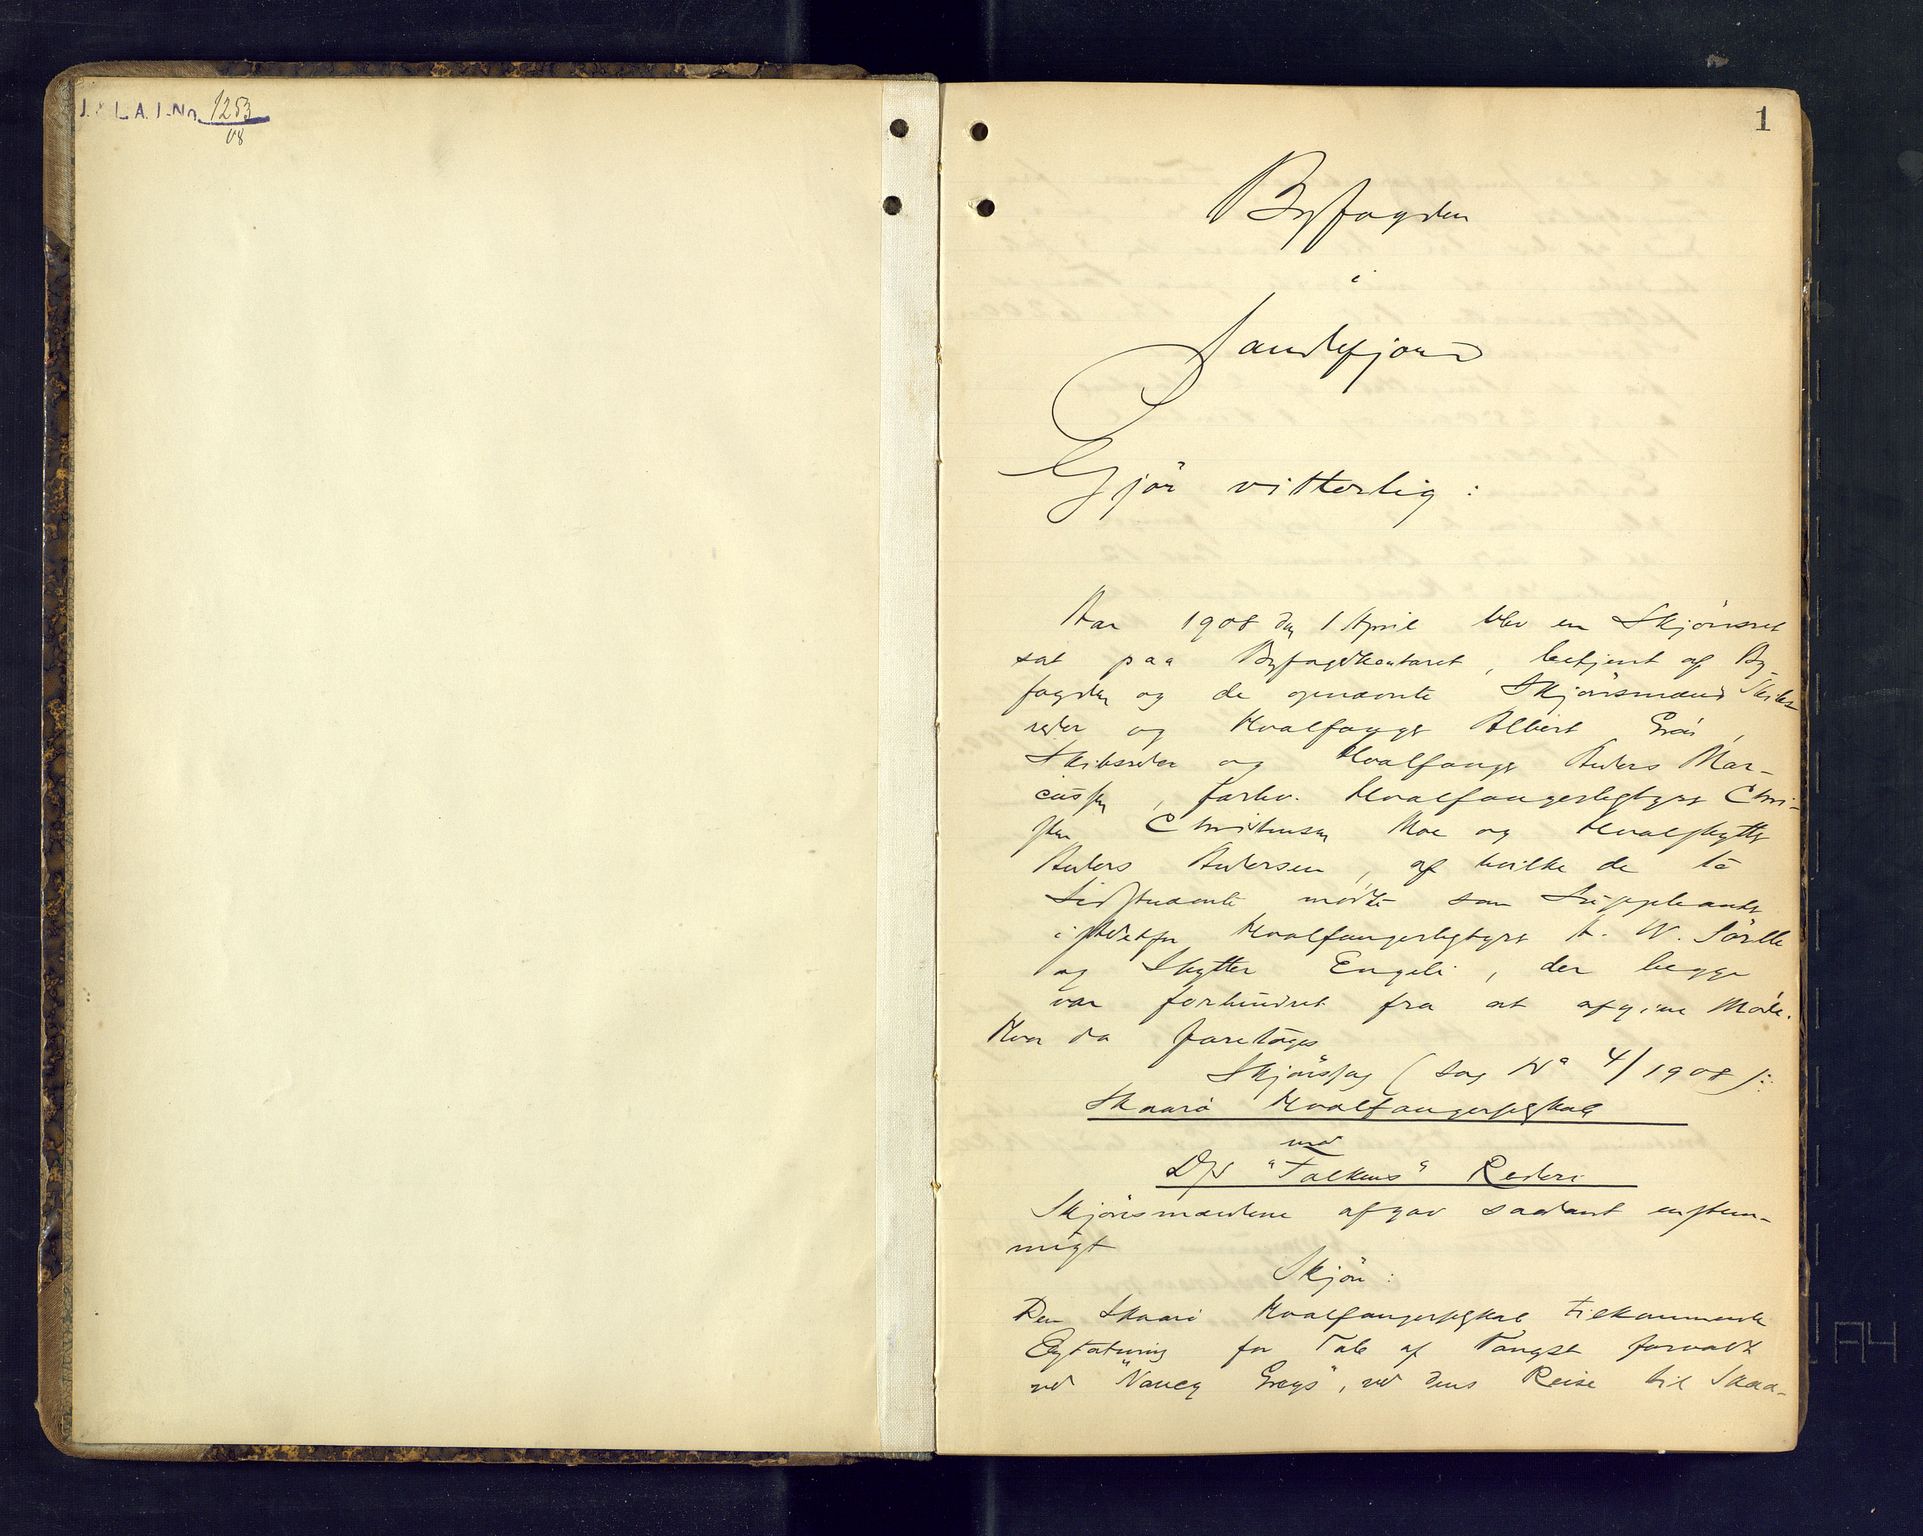 J. & L. A. J.-No. 1253
08
1
Byfogden
i
Sandefjord
Gjør vitterlig:
Aar 1908 den 1 April blev en Skjønsret
sat paa Byfogedkontoret, betjent af By-
fogden og de opnævnte Skjønsmænd Skibs-
reder og Hvalfanger Albert Grøn,
Skibsreder og Hvalfanger Anders Mar-
cussen, forhv. Hvalfangerbestyrer Chri-
sten Christensen Moe og Hvalskytter
Anders Andersen, af hvilke de to
Sidstnævnte mødte som Suppleanter
istedetfor Hvalfangerbestyrer A. W. Sørlle
og Skytter Engeli, der begge
var forhindret fra at afgive Møde.
Hvor da foretoges
Skjønssag (Sag No 4/1908):
Skaarø Hvalfangerselskab
mod
D/S "Falkens" Rederi
Skjønsmændene afgav saadant enstem-
migt
Skjøn:
Den Skaarø Hvalfangerselskab tilkommende
Erstatning for Tab af Fangst forvoldt
ved "Nancy Greys", ved dens Reise til Skaa-